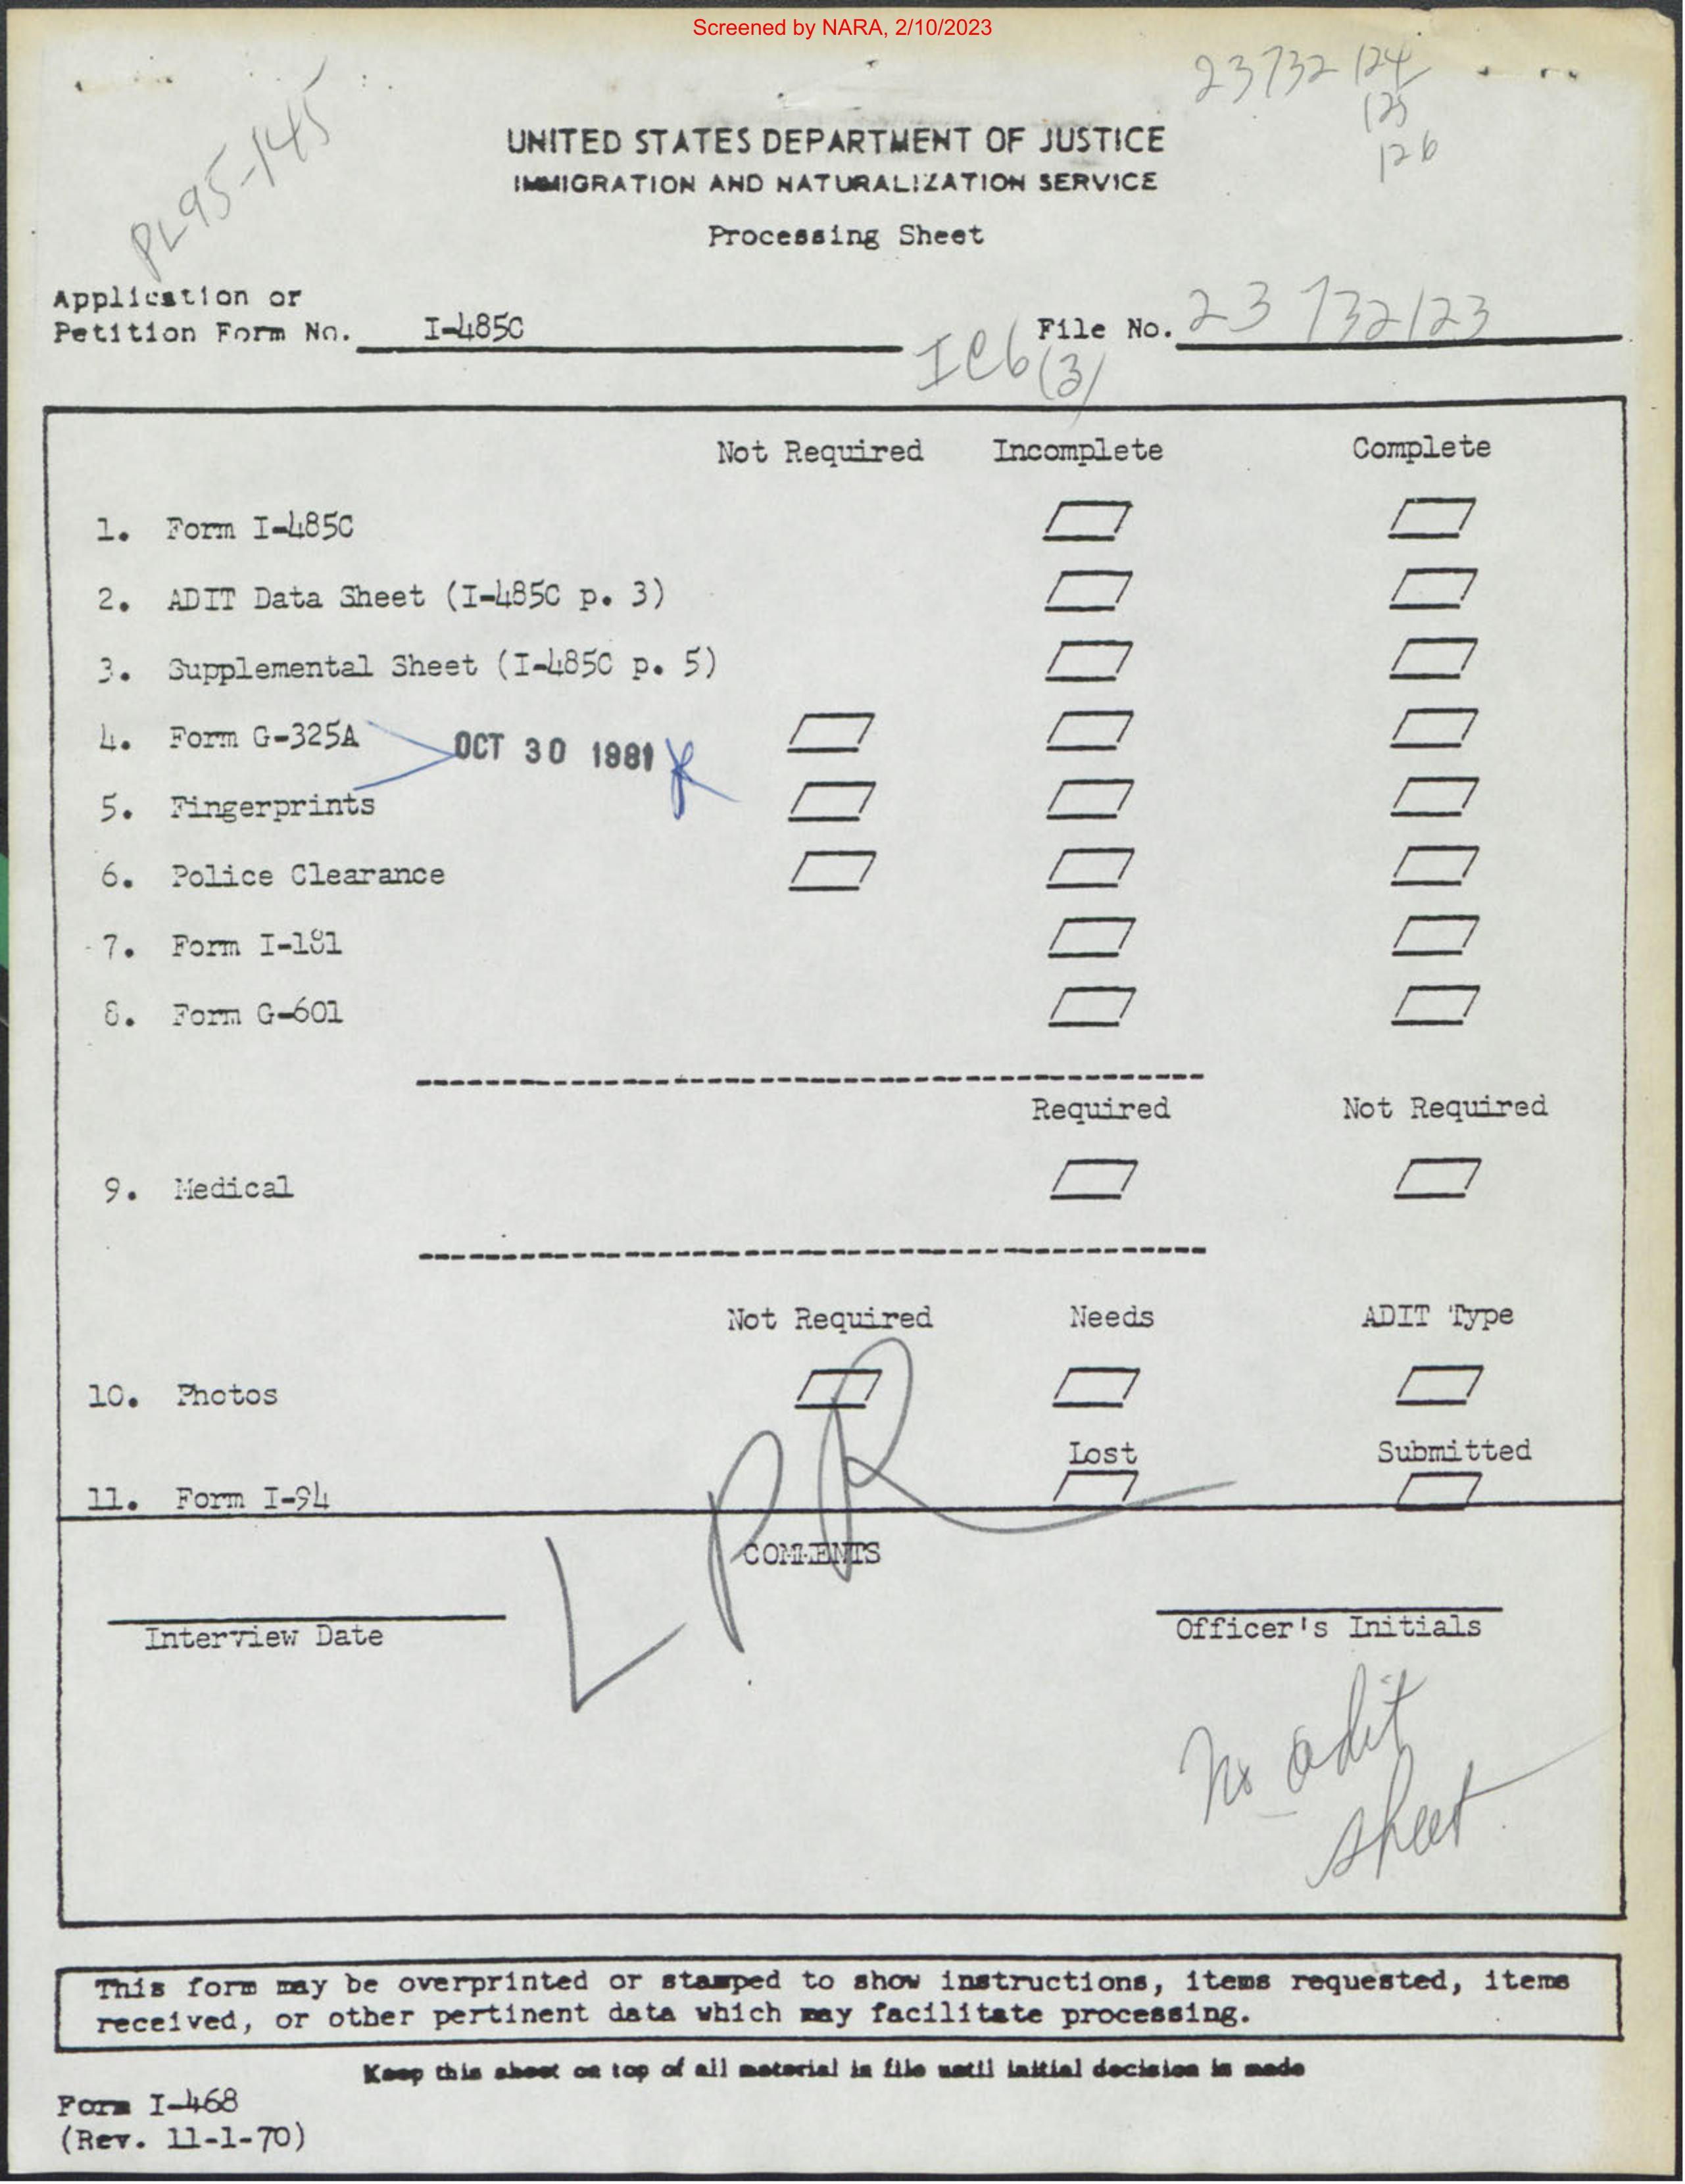 Screened by NARA, 2/10/2023
23732 124
125
126
PL95-145
UNITED STATES DEPARTMENT OF JUSTICE
IMMIGRATION AND NATURALIZATION SERVICE
Processing Sheet
Application or
Petition Form No. I-485C
File No. 23 732123
IC6 (3)
Not Required Incomplete Complete
1. Form I-485C
2. ADIT Data Sheet (I-485C p. 3)
3. Supplemental Sheet (I-485C p. 5)
4. Form G-325A
OCT 30 1981
5. Fingerprints
6. Police Clearance
7. Form I-181
8. Form G-601
Required Not Required
9. Medical
Not Required Needs ADIT Type
10. Photos
Lost Submitted
11. Form I-94
LPR
COMMENTS
Interview Date Officer's Initials
No adit
sheet
This form may be overprinted or stamped to show instructions, items requested, items
received, or other pertinent data which may facilitate processing.
Keep this sheet on top of all material in file until initial decision is made
Form I-468
(Rev. 11-1-70)